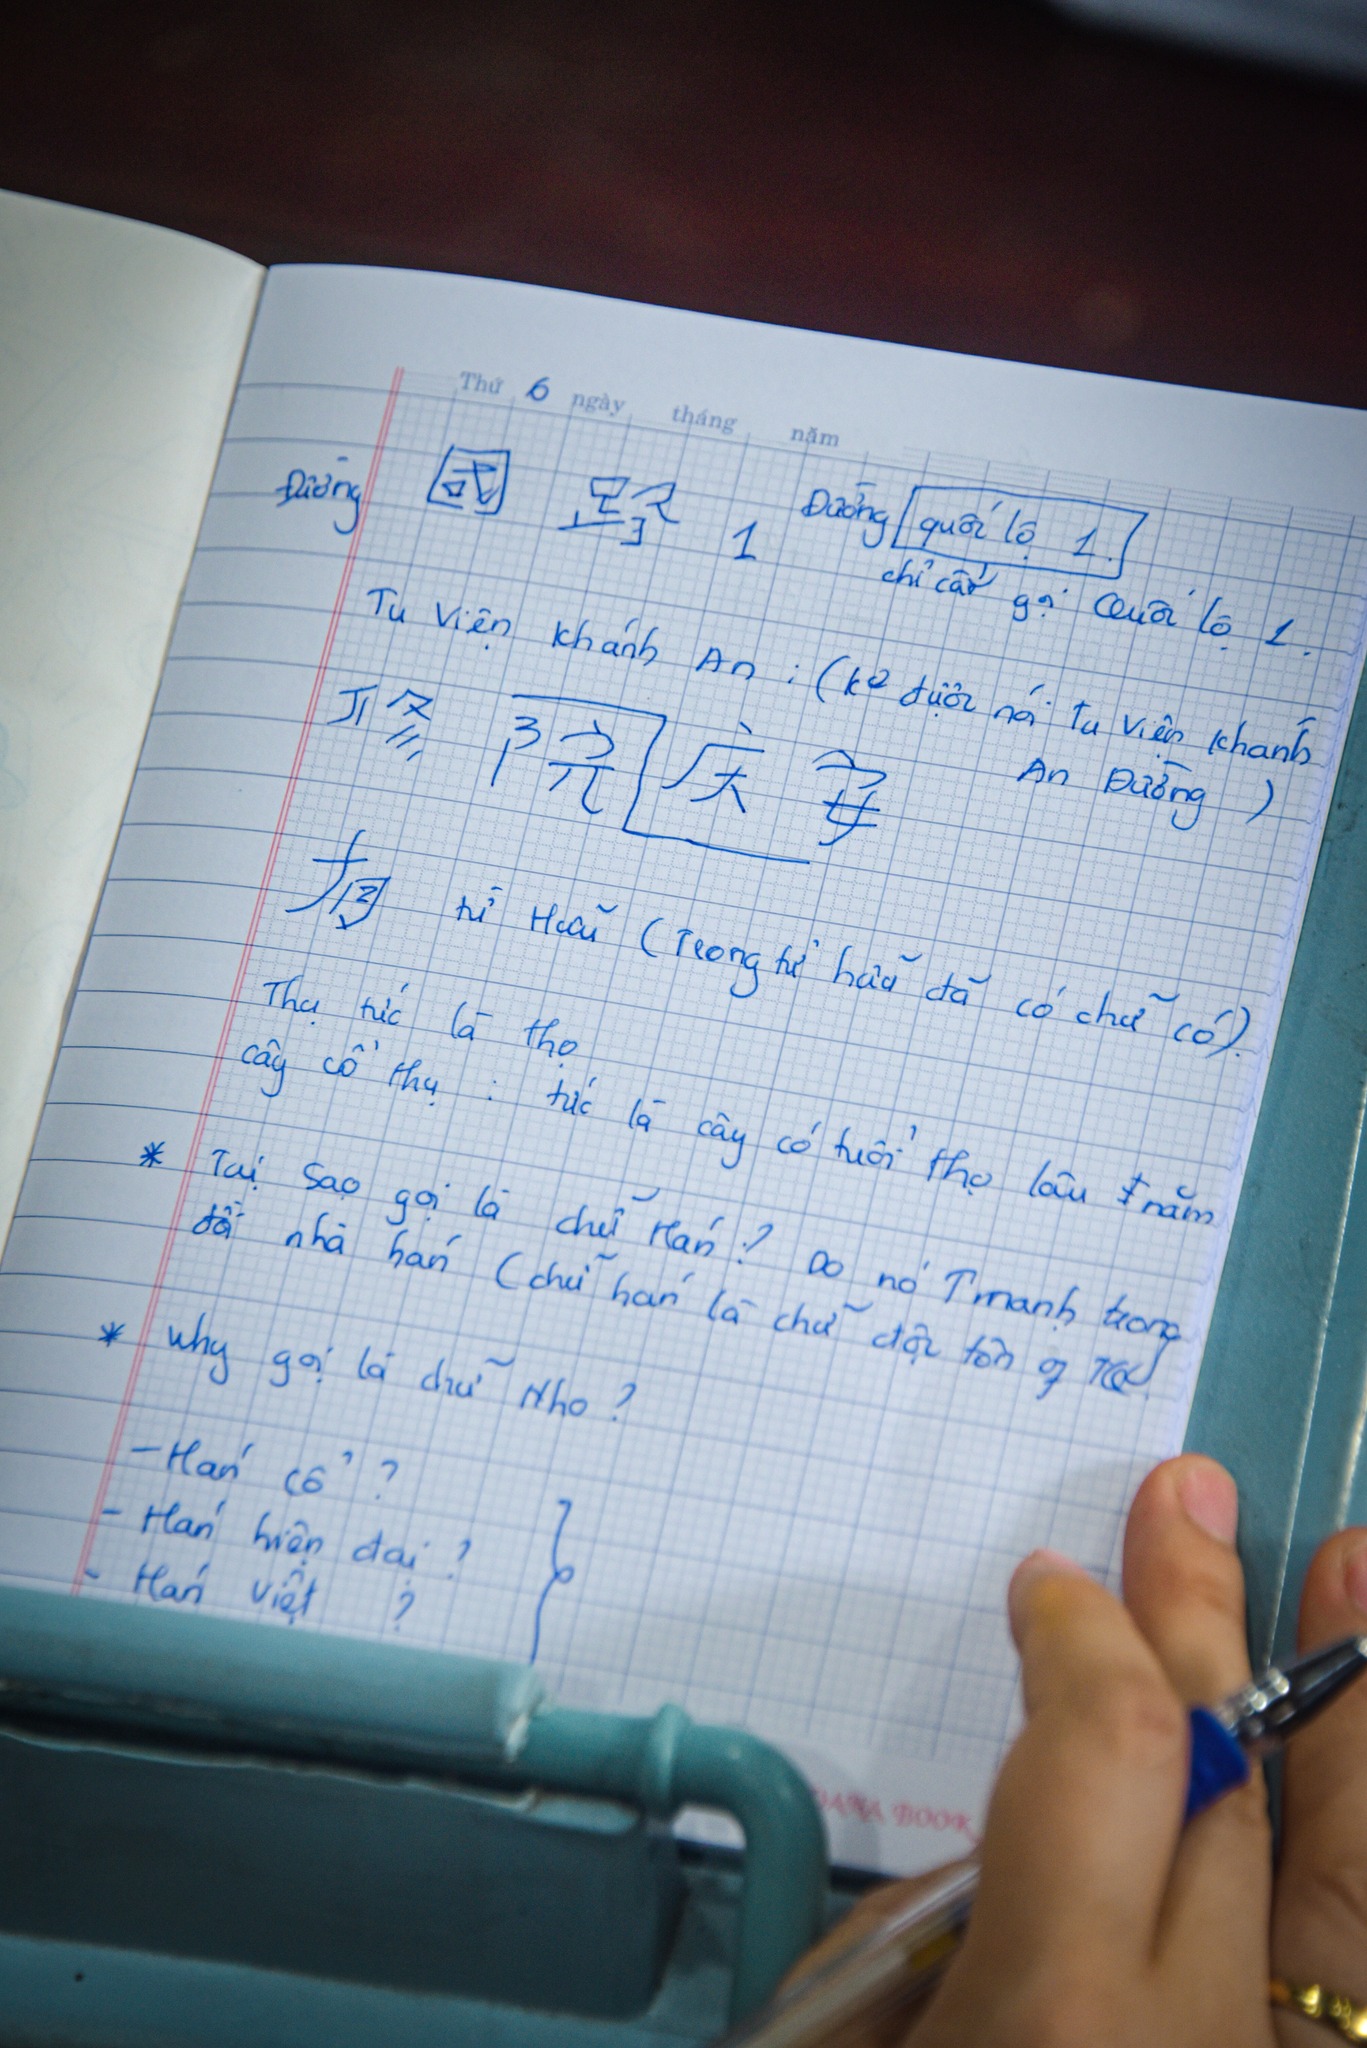 Thứ 6 ngày tháng năm
Đường 國 路 1 Đường quốc lộ 1.
chỉ cần gọi Quốc lộ 1.
Tu Viện Khánh An : (k° được nói Tu Viện Khánh
An Đường)
修 院 庆 安
有 từ Hữu (Trong từ hữu đã có chữ có).
Thụ tức là thọ
cây cổ thụ : tức là cây có tuổi thọ lâu năm
* Tại sao gọi là chữ Hán? Do nó ↑ mạnh trong
đời nhà hán (chữ hán là chữ độc tôn ở TQ)
* Why gọi là chữ Nho?
- Hán cổ ?
- Hán hiện đại ?
- Hán Việt ?
BOOK